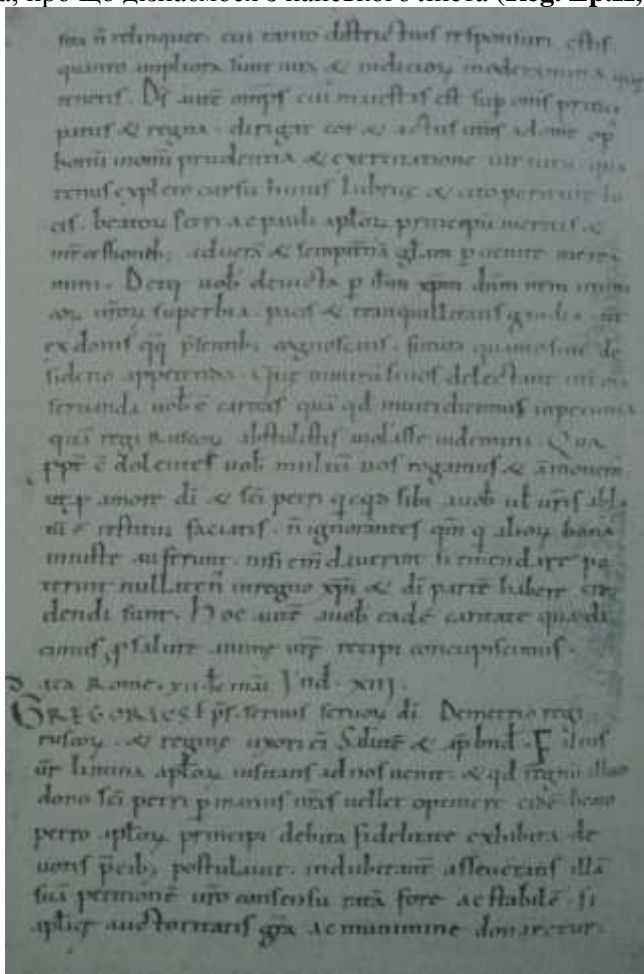 ſua ñ relinquet. cui tanto diſtrictiuſ reſponſuri eſtiſ
quanto ampliora ſunt iura & iudicioꝝ moderamina que
teneriſ. Dſ̄ aut̄ omp̄ſ cui maieſtaſ eſt ſup omiſ princi
patuſ & regna. dirigat cor & actuſ ad omē op
bonū prudentia & exercitatione uirtutū. qua
tenuſ expleto curſu huiuſ lubrice & cito periture lu
ciſ. beatoꝝ Petri ac pauli aplōꝝ principū meritiſ &
ad uerā & ſempit̄nā gl̄am puenire merea
mini. Detq uob deuicta p iħm xp̄m dn̄m nr̄m inimi
coꝝ ūroꝝ ſuperbia. paciſ & tranquillitatiſ gaudia. ut
ex doniſ qq̨ p̄ſentib; cognoſcatiſ. quanto ſint de
ſiderio appetenda. Que
ſeruanda uob ē caritaſ quā qđ inuiti dicimuſ in pecunia
quā regi Ruſcoꝝ abſtuliſtiſ uiolaſſe uidemini. Qua
ppt̄ ē dolenteſ uob multū uoſ rogamuſ & āmonem̄
ut p amore dī & ſcī petri
ē reſtitui faciatiſ. ñ ignoranteſ qm̄ q alioꝝ bona
iniuſte auferunt. niſi em̄dauerint ſi emendare po
terunt nullaten̄ in regno xp̄i & dī partē habere cre
dendi ſunt. Hoc aut̄ a uob eadē caritate qua di
cimuſ, p ſalute anime recipi concupiſcimuſ.
Data Rome. xii. kl̄ maii Ind. xiii.
GREGORIUS ep̄ſ. ſeruuſ ſeruoꝝ dī. Demetrio regi
ruſcoꝝ. & regine uxori ei Salutē & ap̄l bn̄d. Filiuſ
ūr limina aplōꝝ uiſitanſ ad noſ uenit. & qđ regnū illud
dono ſcī petri p manuſ nr̄aſ uellet optinere eidē beato
petro aplōꝝ principi debita fidelitate exhibita de
uotiſ p̄cib; poſtulauit. indubitant̄ aſſeueranſ illā
ſuā petitionē ūro conſenſu ratā fore ac ſtabilē. ſi
apl̄icę auctoritatiſ gr̄a ac munimine donaretur.